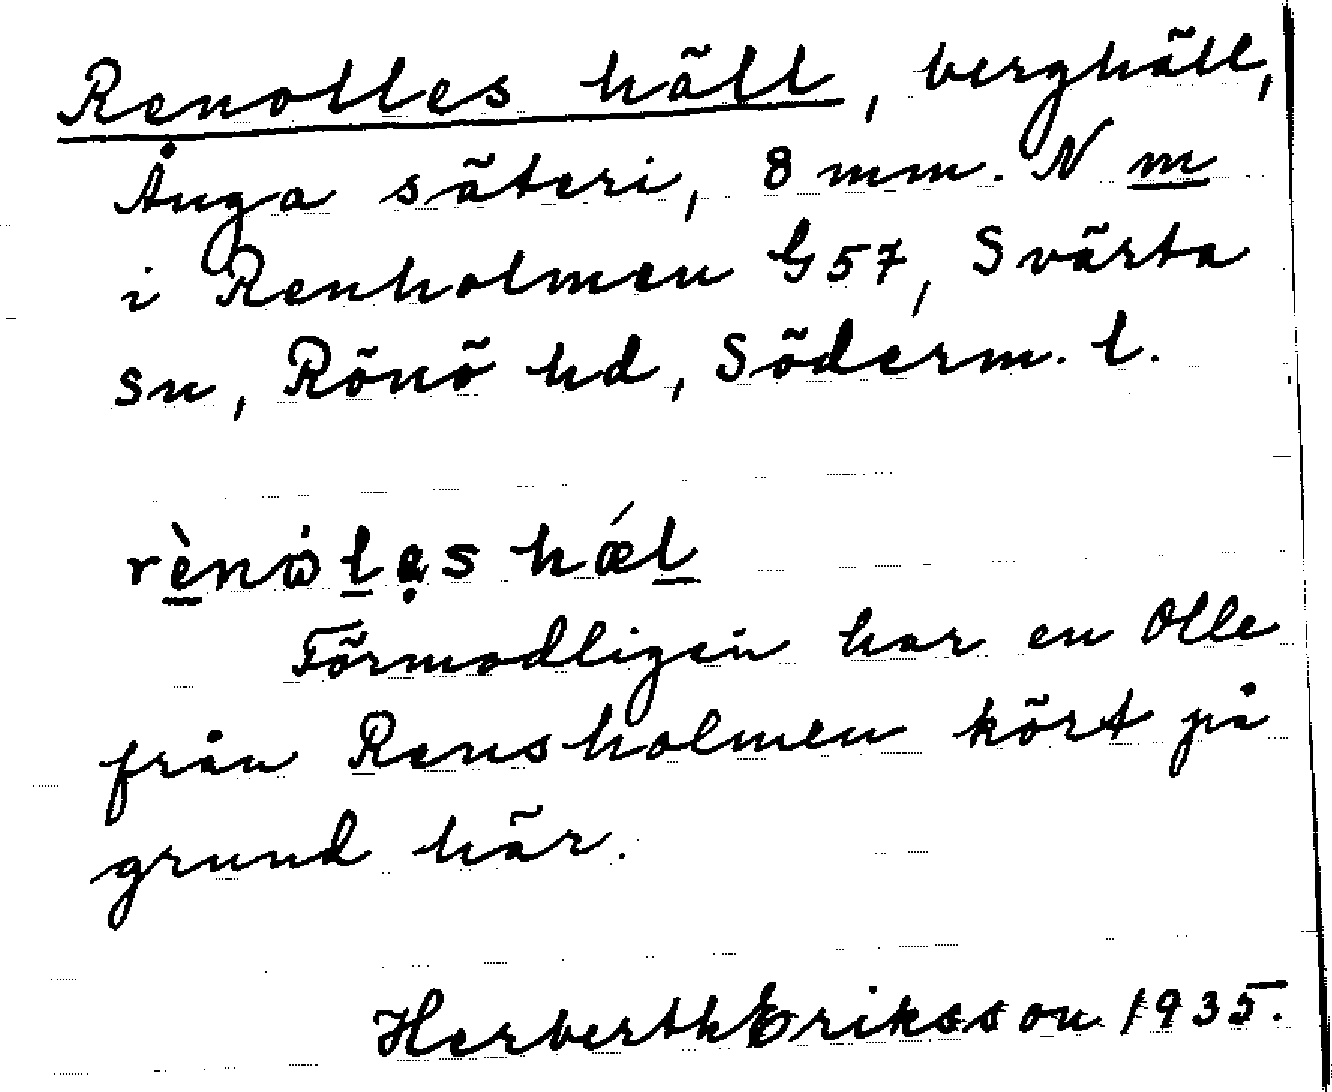 Renolles häll, berghäll,
Ånga säteri, 8 mm. N m
i Renholmen G57, Svärta
sn, Rönö hd, Söderm. l.
rènω̇lạs hǽl
Förmodligen har en Olle
från Rensholmen kört på
grund här.
Herberth Eriksson 1935.